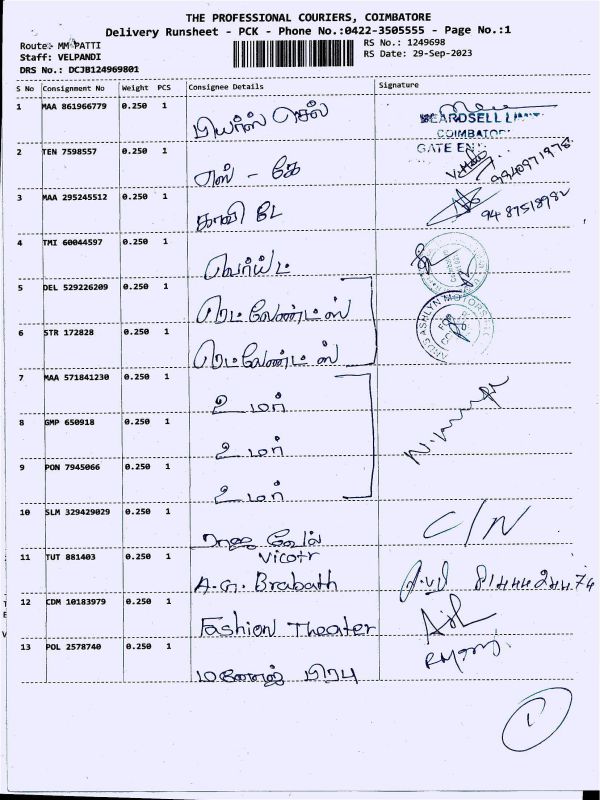 THE PROFESSIONAL COURIERS, COIMBATORE
Delivery Runsheet - PCK - Phone No.:0422-3505555 - Page No.:1
Route: MM PATTI
RS No.: 1249698
Staff: VELPANDI
RS Date: 29-Sep-2023
DRS No.: DCJB124969801
S No Consignment No Weight PCS Consignee Details Signature
1 MAA 861966779 0.250 1 பியர்ஸ் செல்
BEARDSELL LIMIT
COIMBATOR
GATE EN
2 TEN 7598557 0.250 1 எஸ் - கே 9940971978
3 MAA 295245512 0.250 1 காவி டே 9487518982
4 TMI 60044597 0.250 1
5 DEL 529226209 0.250 1 ரெடலேண்டஸ்
ASHLYN MOTORS
6 STR 172828 0.250 1 ரெடலேண்டஸ்
7 MAA 571841230 0.250 1 உமர்
8 GMP 650918 0.250 1 உமர்
9 PON 7945066 0.250 1 உமர்
10 SLM 329429029 0.250 1 ராஜ வேல் C/N
Vicotr
11 TUT 881403 0.250 1 A.G. Brabath 8144424474
12 CDM 10183979 0.250 1 Fashion Theater
13 POL 2578740 0.250 1 மனோஜ் பிரபு
1